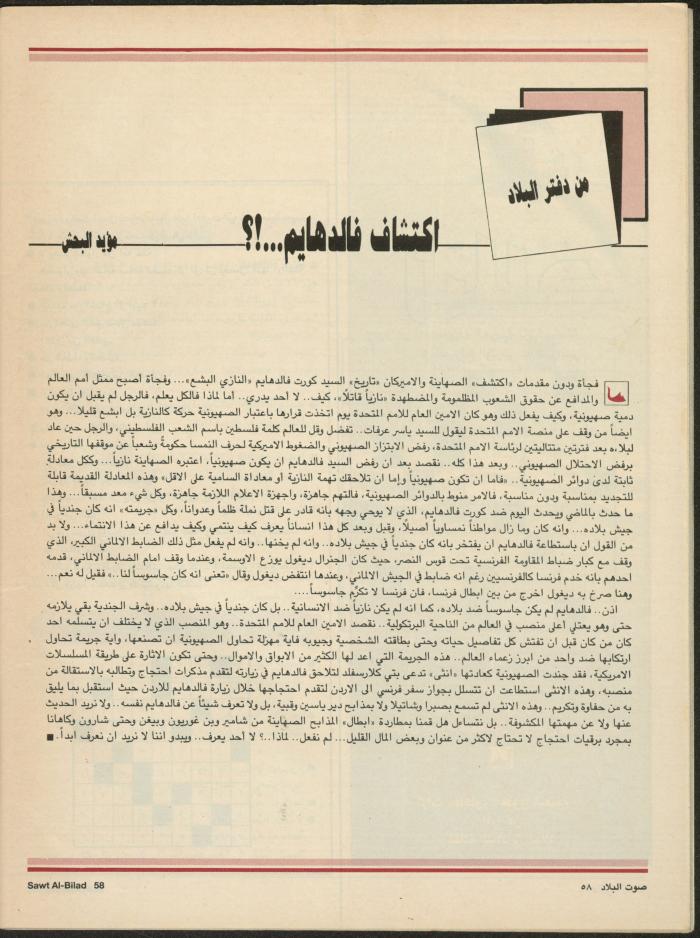 من دفتر البلاد
اكتشاف فالدهايم...!؟
مؤيد البحش
فجأة ودون مقدمات «اكتشف» الصهاينة والاميركان «تاريخ» السيد كورت فالدهايم «النازي البشع»... وفجأة أصبح ممثل أمم العالم
والمدافع عن حقوق الشعوب المظلمومة والمضطهدة «نازياً قاتلاً»، كيف.. لا أحد يدري.. أما لماذا فالكل يعلم، فالرجل لم يقبل ان يكون
دمية صهيونية، وكيف يفعل ذلك وهو كان الامين العام للامم المتحدة يوم اتخذت قرارها باعتبار الصهيونية حركة كالنازية بل ابشع قليلا... وهو
ايضاً من وقف على منصة الامم المتحدة ليقول للسيد ياسر عرفات.. تفضل وقل للعالم كلمة فلسطين باسم الشعب الفلسطيني، والرجل حين عاد
لبلاده بعد فترتين متتاليتين لرئاسة الامم المتحدة، رفض الابتزاز الصهيوني والضغوط الاميركية لحرف النمسا حكومةً وشعباً عن موقفها التاريخي
برفض الاحتلال الصهيوني.. وبعد هذا كله.. نقصد بعد ان رفض السيد فالدهايم ان يكون صهيونياً، اعتبره الصهاينة نازياً... وككل معادلة
ثابتة لدى دوائر الصهيونية.. «فاما ان تكون صهيونياً وإما ان تلاحقك تهمة النازية أو معاداة السامية على الاقل» وهذه المعادلة القديمة قابلة
للتجديد بمناسبة ودون مناسبة، فالامر منوط بالدوائر الصهيونية، فالتهم جاهزة، واجهزة الاعلام اللازمة جاهزة، وكل شيء معد مسبقاً... وهذا
ما حدث بالماضي ويحدث اليوم ضد كورت فالدهايم، الذي لا يوحي وجهه بانه قادر على قتل نملة ظلماً وعدواناً، وكل «جريمته» انه كان جندياً في
جيش بلاده... وانه كان وما زال مواطناً نمساوياً أصيلاً، وقبل وبعد كل هذا انساناً يعرف كيف ينتمي وكيف يدافع عن هذا الانتماء... ولا بد
من القول ان باستطاعة فالدهايم ان يفتخر بانه كان جندياً في جيش بلاده.. وانه لم يخنها.. وانه لم يفعل مثل ذلك الضابط الالماني الكبير، الذي
وقف مع كبار ضباط المقاومة الفرنسية تحت قوس النصر، حيث كان الجنرال ديغول يوزع الاوسمة، وعندما وقف امام الضابط الالماني، قدمه
احدهم بانه خدم فرنسا كالفرنسيين رغم انه ضابط في الجيش الالماني، وعندها انتفض ديغول وقال «تعنى انه كان جاسوساً لنا..» فقيل له نعم...
وهنا صرخ به ديغول اخرج من بين ابطال فرنسا، فان فرنسا لا تكرّم جاسوساً....
اذن.. فالدهايم لم يكن جاسوساً ضد بلاده، كما انه لم يكن نازياً ضد الانسانية.. بل كان جندياً في جيش بلاده.. وشرف الجندية بقي يلازمه
حتى وهو يعتلي أعلى منصب في العالم من الناحية البرتكولية.. نقصد الامين العام للامم المتحدة.. وهو المنصب الذي لا يختلف ان يتسلمه احد
كان من كان قبل ان تفتش كل تفاصيل حياته وحتى بطاقته الشخصية وجيوبه فاية مهزلة تحاول الصهيونية ان تصنعها، واية جريمة تحاول
ارتكابها ضد واحد من ابرز زعماء العالم.. هذه الجريمة التي اعد لها الكثير من الابواق والاموال.. وحتى تكون الاثارة على طريقة المسلسلات
الامريكية، فقد جندت الصهيونية كعادتها «انثى» تدعى بتي كلارسفلد لتلاحق فالدهايم في زيارته لتقدم مذكرات احتجاج وتطالبه بالاستقالة من
منصبه، وهذه الانثى استطاعت ان تتسلل بجواز سفر فرنسي الى الاردن لتقدم احتجاجها خلال زيارة فالدهايم للأردن حيث استقبل بما يليق
به من حفاوة وتكريم.. وهذه الانثى لم تسمع بصبرا وشاتيلا ولا بمذابح دير ياسين وقبية، بل ولا تعرف شيئاً عن فالدهايم نفسه.. ولا نريد الحديث
عنها ولا عن مهمتها المكشوفة.. بل نتساءل هل قمنا بمطاردة «ابطال» المذابح الصهاينة من شامير وبن غوريون وبيغن وحتى شارون وكاهانا
بمجرد برقيات احتجاج لا تحتاج لاكثر من عنوان وبعض المال القليل... لم نفعل.. لماذا..؟ لا أحد يعرف.. ويبدو اننا لا نريد ان نعرف ابداً.
صوت البلاد ٥٨
Sawt Al-Bilad 58